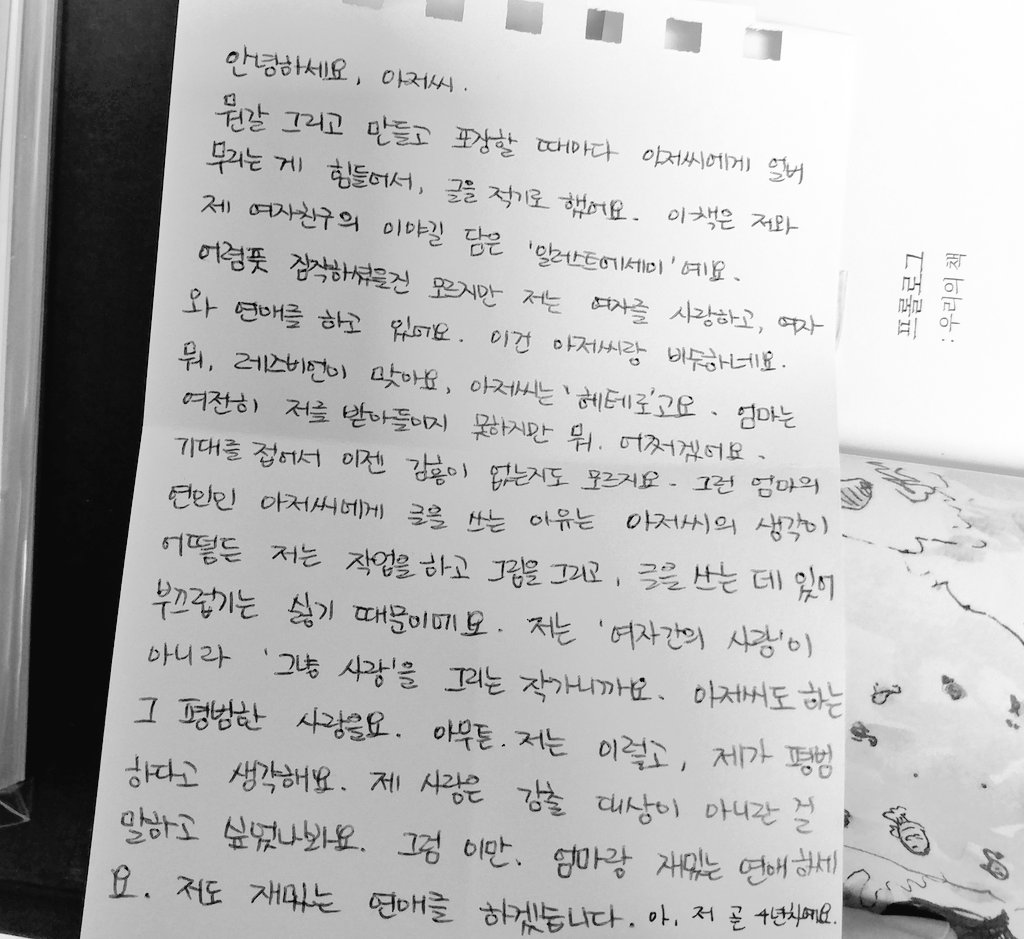 안녕하세요, 아저씨.
뭔갈 그리고 만들고 포장할 때마다 아저씨에게 얼버
무리는 게 힘들어서, 글을 적기로 했어요. 이 책은 저와
제 여자친구의 이야길 담은 '일러스트에세이'예요.
어렴풋 짐작하셨을런 모르지만 저는 여자를 사랑하고, 여자
와 연애를 하고 있어요. 이건 아저씨랑 비슷하네요.
뭐, 레즈비언이 맞아요, 아저씨는 '헤테로'고요. 엄마는
여전히 저를 받아들이지 못하지만 뭐. 어쩌겠어요.
기대를 접어서 이젠 감흥이 없는지도 모르지요. 그런 엄마의
연인인 아저씨에게 글을 쓰는 이유는 아저씨의 생각이
어떻든 저는 작업을 하고 그림을 그리고, 글을 쓰는 데 있어
부끄럽기는 싫기 때문이에요. 저는 '여자간의 사랑'이
아니라 '그냥 사랑'을 그리는 작가니까요. 아저씨도 하는
그 평범한 사랑을요. 아무튼. 저는 이렇고, 제가 평범
하다고 생각해요. 제 사랑은 감출 대상이 아니란 걸
말하고 싶었나봐요. 그럼 이만. 엄마랑 재밌는 연애하세
요. 저도 재밌는 연애를 하겠습니다. 아, 저 곧 4년차예요.
프롤로그
: 우리의 책